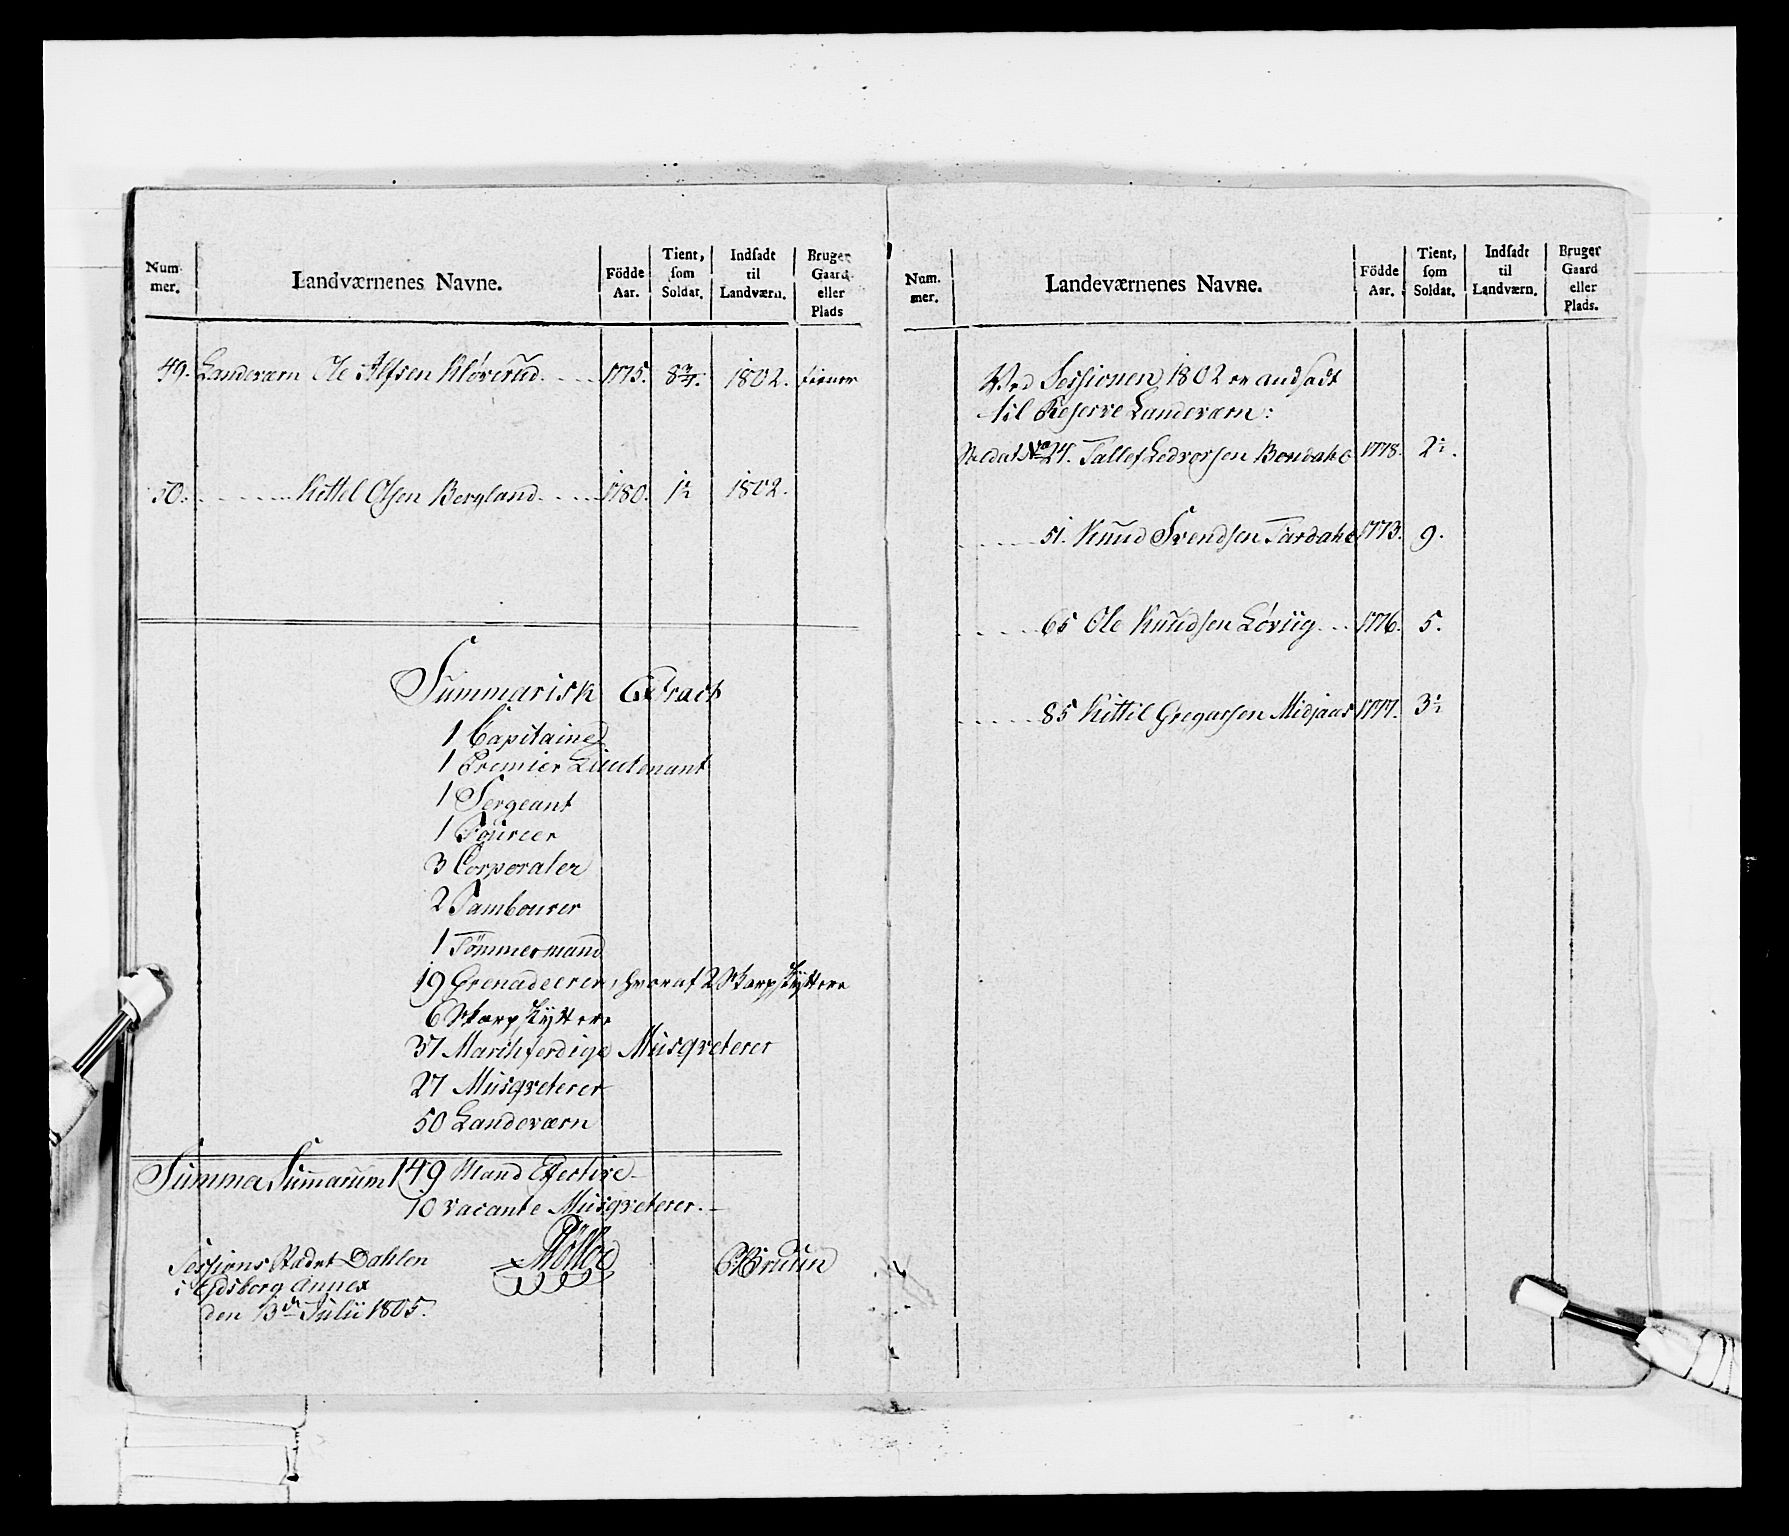 Num mer. Landværnenes Navne. Födde Aar. Tient, som Soldat. Indsadt til Landværn. Bruger Gaard eller Plads
49. Landeværn Ole Alfsen Kløverud 1775. 1802. tiener
50. Kittel Olsen Bergland 1780. 1½ 1802.
Summarisk Extract
1 Capitaine
1 Premier Lieutenant
1 Sergeant
1 Foureer
3 Corporaler
2 Tambourer
1 Tömmermand
19 Grenadeerer, hvoraf 2 Skarpskyttere
6 Skarpskyttere
37 Marchferdige Musqveterer
27 Musqveterer
50 Landeværn
Summa Summarum 149 Mand Efective
10 vacante Musqveterer.
Sessions Stædet Dahlen
i Eidsborg Annex
den 13de Julii 1805.
Bruun
Num. mer. Landeværnenes Navne. Födde Aar. Tient, som Soldat. Indsadt til Landværn. Bruger Gaard eller Plads.
Ved Sessionen 1802 er andsadt
til Reserve Landeværn:
No 24. Tallef Ledvorsen Bondahl 1778. 2½.
51. Knud Svendsen Tardahl 1773. 9.
65 Ole Knudsen Løviig 1776. 5.
85 Kittil Gregarsen Midjaas 1777. 3½